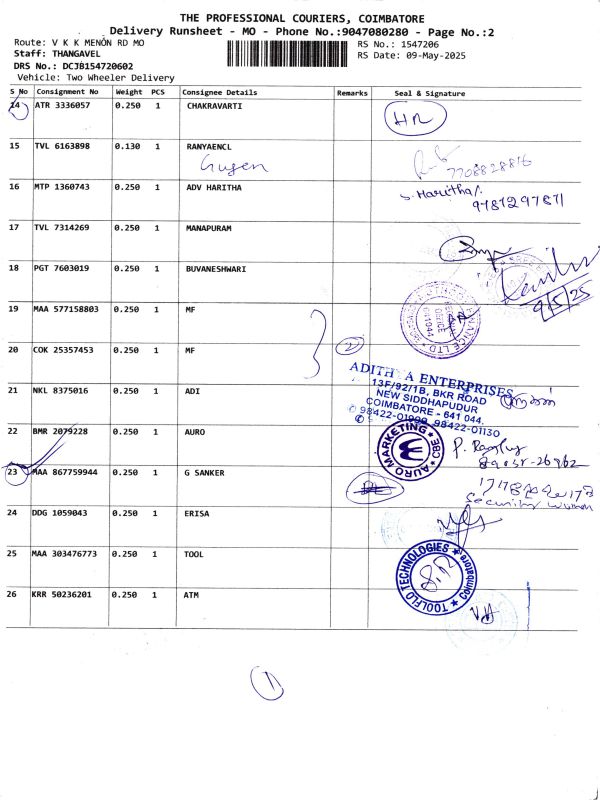 THE PROFESSIONAL COURIERS, COIMBATORE
Delivery Runsheet - MO - Phone No.:9047080280 - Page No.:2
Route: V K K MENON RD MO
RS No.: 1547206
Staff: THANGAVEL
RS Date: 09-May-2025
DRS No.: DCJB154720602
Vehicle: Two Wheeler Delivery
S No Consignment No Weight PCS Consignee Details Remarks Seal & Signature
14 ATR 3336057 0.250 1 CHAKRAVARTI
HR
15 TVL 6163898 0.130 1 RANYAENCL
7708828816
16 MTP 1360743 0.250 1 ADV HARITHA
S. Haritha
9787297871
17 TVL 7314269 0.250 1 MANAPURAM
18 PGT 7603019 0.250 1 BUVANESHWARI
9/5/25
19 MAA 577158803 0.250 1 MF
20 COK 25357453 0.250 1 MF
2
ADITHYA ENTERPRISES
13F/92/1B, BKR ROAD
NEW SIDDHAPUDUR
COIMBATORE - 641 044.
98422-01130
21 NKL 8375016 0.250 1 ADI
22 BMR 2079228 0.250 1 AURO
AURO MARKETING ★ CBE ★
23 MAA 867759944 0.250 1 G SANKER
Security
24 DDG 1059043 0.250 1 ERISA
25 MAA 303476773 0.250 1 TOOL
TOOLFLO TECHNOLOGIES ★ Coimbatore ★
S.R
26 KRR 50236201 0.250 1 ATM
1